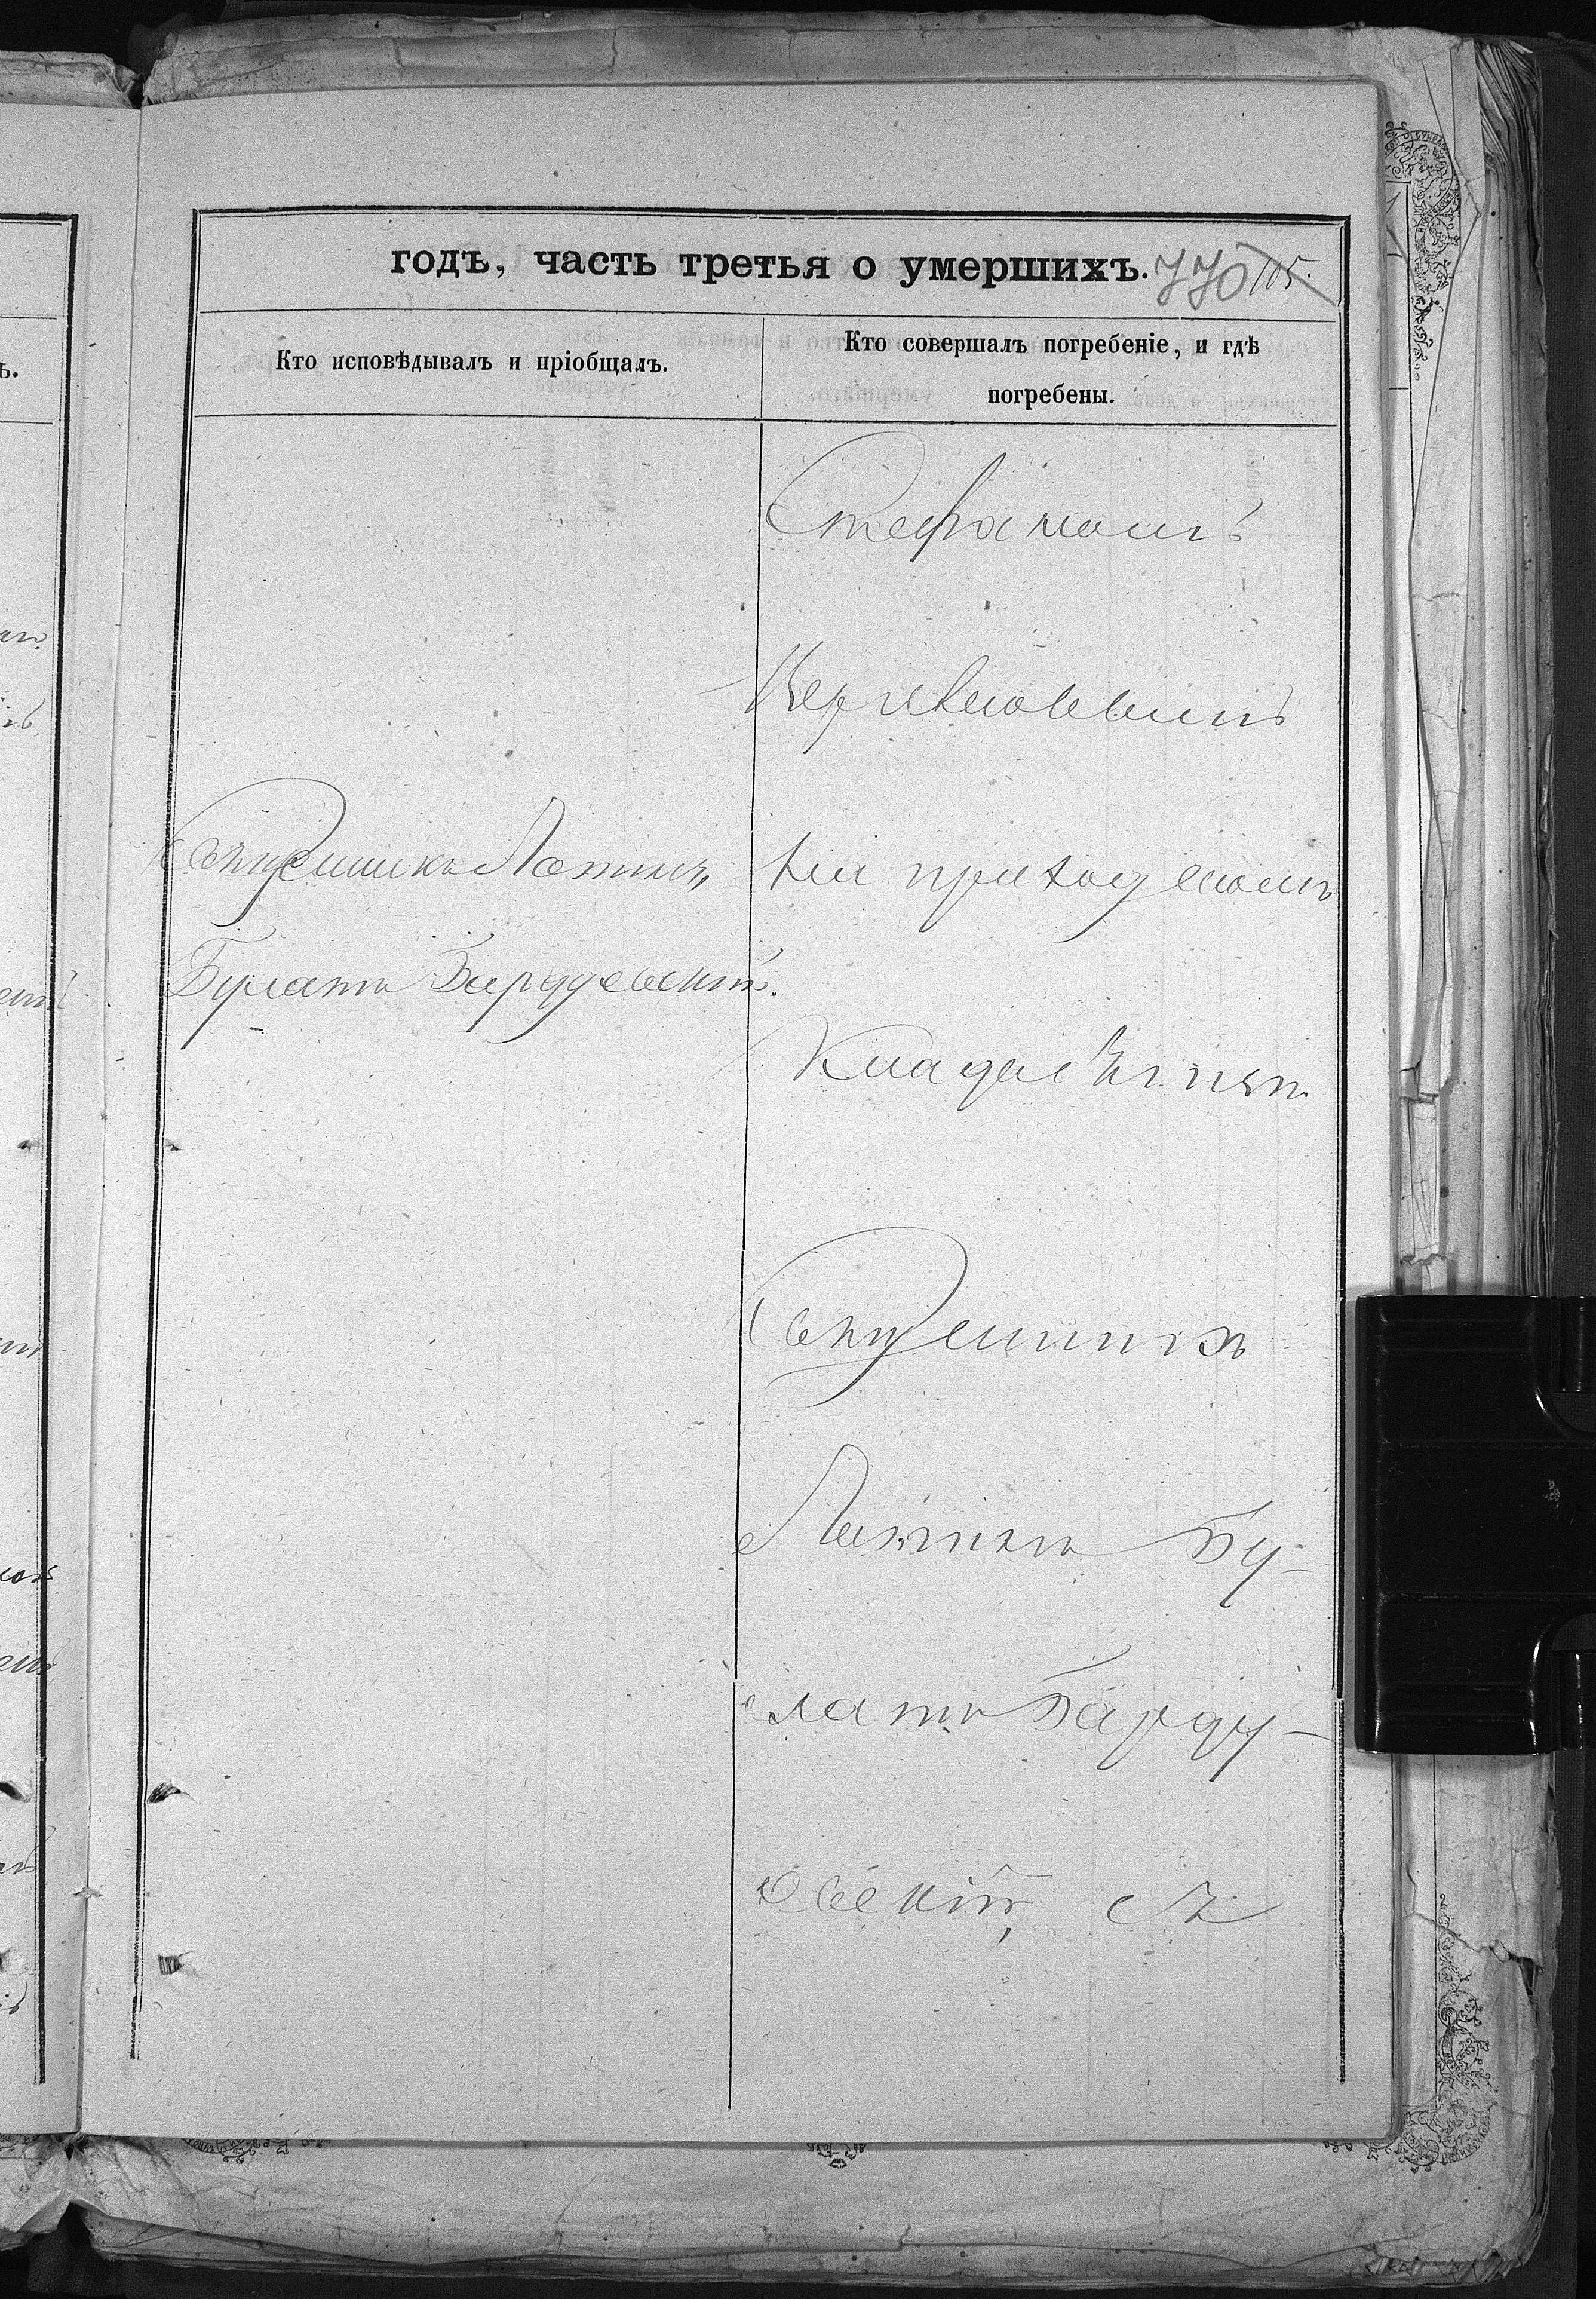 годъ, часть третья о умершихъ. 770 105.
Кто исповѣдывалъ и пріобщалъ.
Кто совершалъ погребеніе, и гдѣ
погребены.
Священникъ Логинъ
Булатъ Бардуевскій.
Стефаномъ
на приходскомъ
Кладбищѣ
Священникъ
Логинъ Бу-
латъ Барду-
евскій, съ